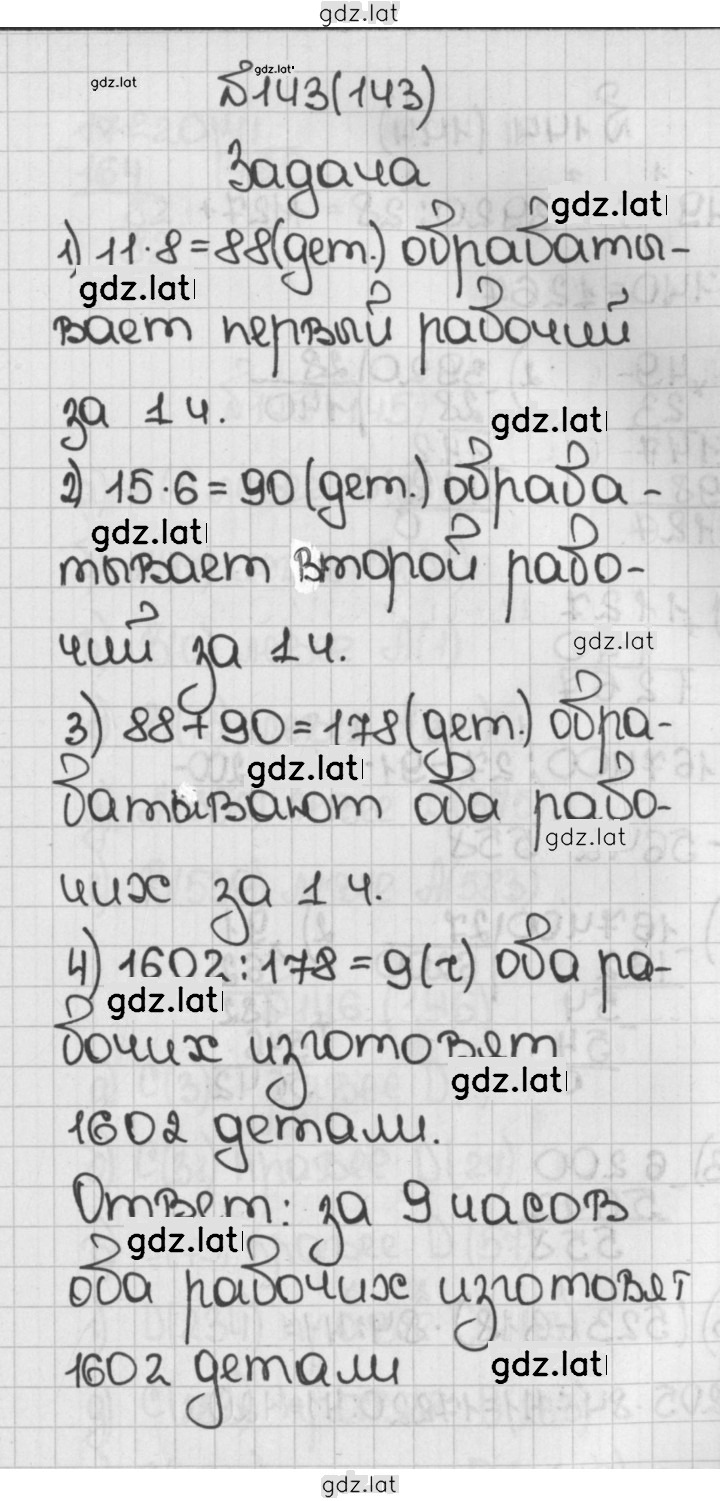 gdz.lat
gdz.lat
gdz.lat
№143(143)
Задача
gdz.lat
1) 11·8=88(дет.) обрабаты-
gdz.lat
вает первый рабочий
за 1 ч.
gdz.lat
2) 15·6=90(дет.) обраба-
gdz.lat
тывает второй рабо-
чий за 1 ч.
gdz.lat
3) 88+90=178(дет.) обра-
gdz.lat
батывают оба рабо-
gdz.lat
чих за 1 ч.
4) 1602:178=9(ч) оба ра-
gdz.lat
бочих изготовят
gdz.lat
1602 детали.
Ответ: за 9 часов
gdz.lat
оба рабочих изготовят
1602 детали
gdz.lat
gdz.lat